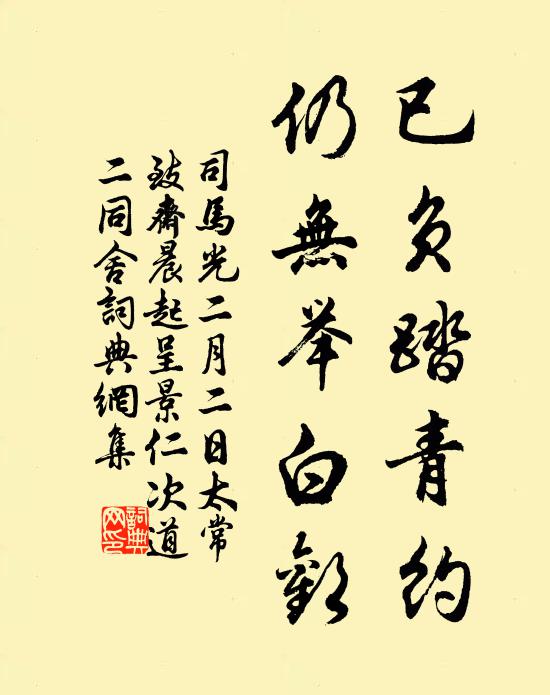 已负踏青约
仍無举白歡
司馬光二月二日太常
致齋晨起呈景仁次道
二同舍詞典網集
詞典网印